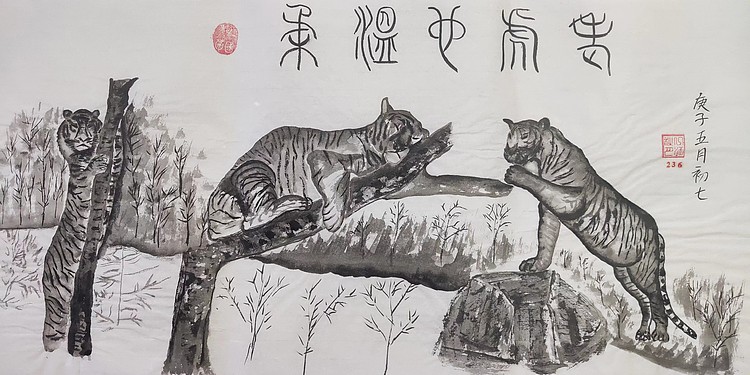 老虎也溫柔
庚子五月初七
236